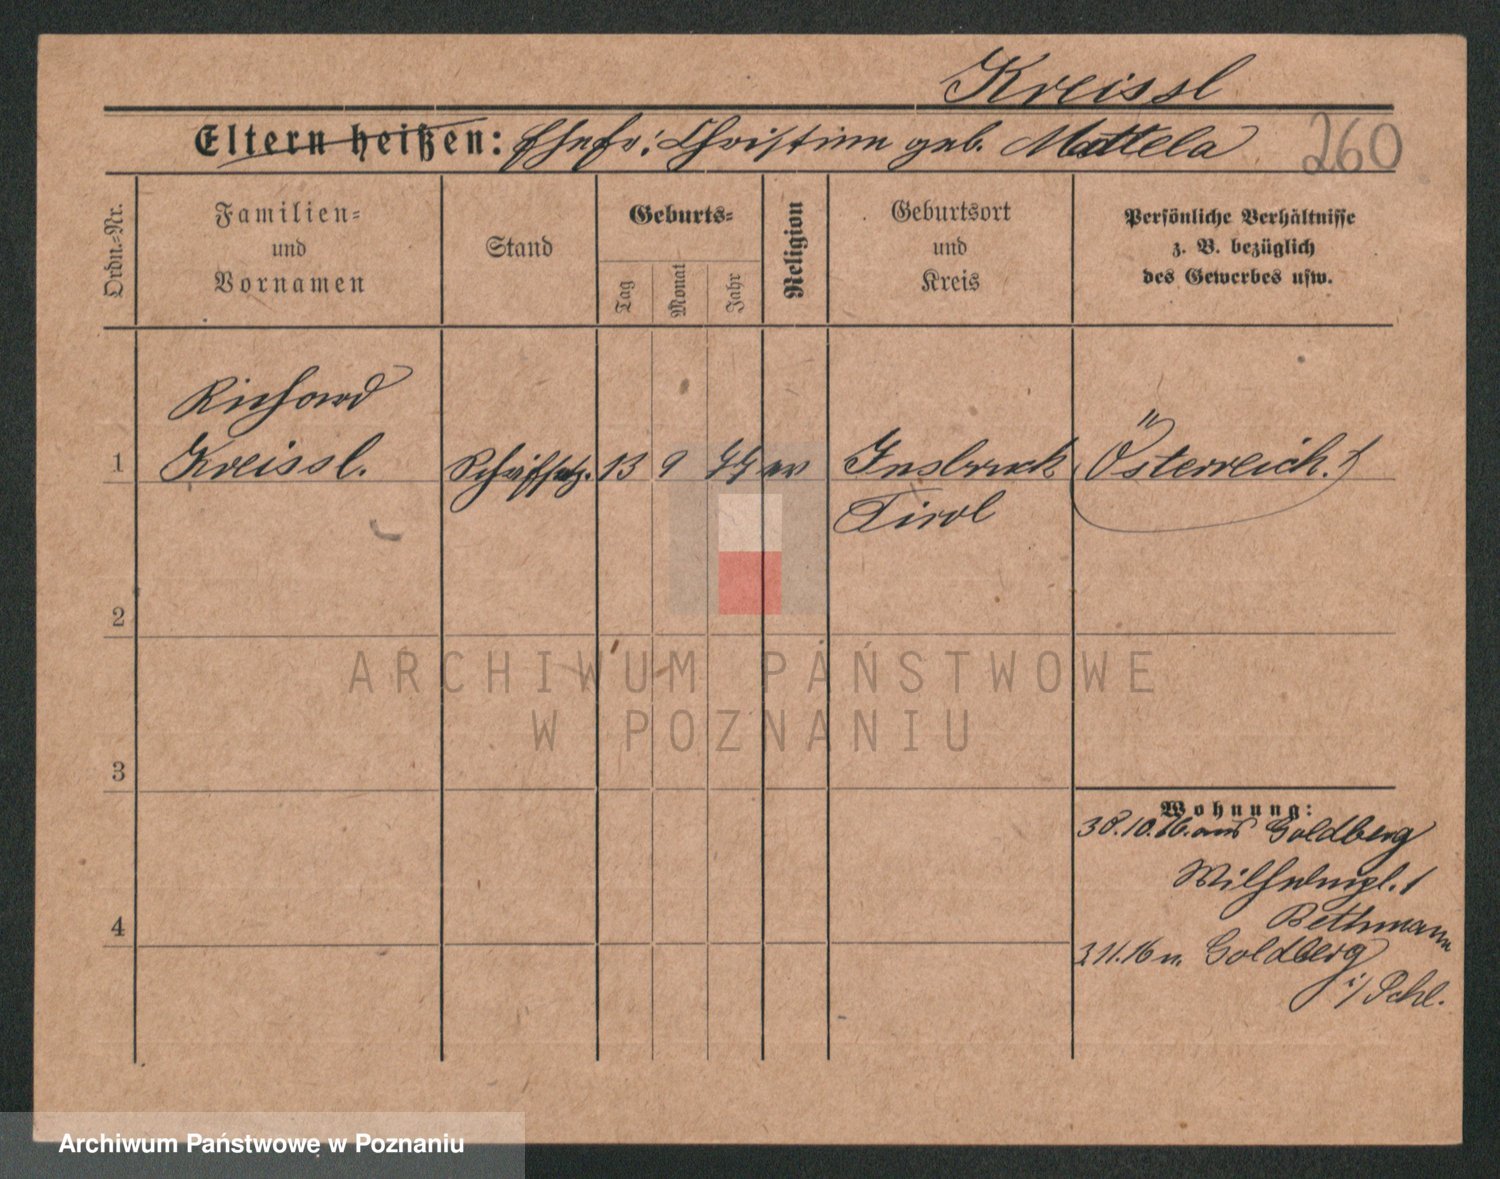 Kreissl
Eltern heißen: Ehefr: Christine geb. Mattela
260
Ordn.-Nr.
Familien-
und
Vornamen
Stand
Geburts-
Tag
Monat
Jahr
Religion
Geburtsort
und
Kreis
Persönliche Verhältnisse
z. B. bezüglich
des Gewerbes usw.
Richard
1 Kreissl. Schriftsetz. 13 9 77 ev Insbruck Österreich.
Tirol
2
3
4
Wohnung:
30.10.16. aus Goldberg
Wilhelmpl. 1
Bethmann
3 11.16 n. Goldberg
i/ Schl.
ARCHIWUM PAŃSTWOWE
W POZNANIU
Archiwum Państwowe w Poznaniu